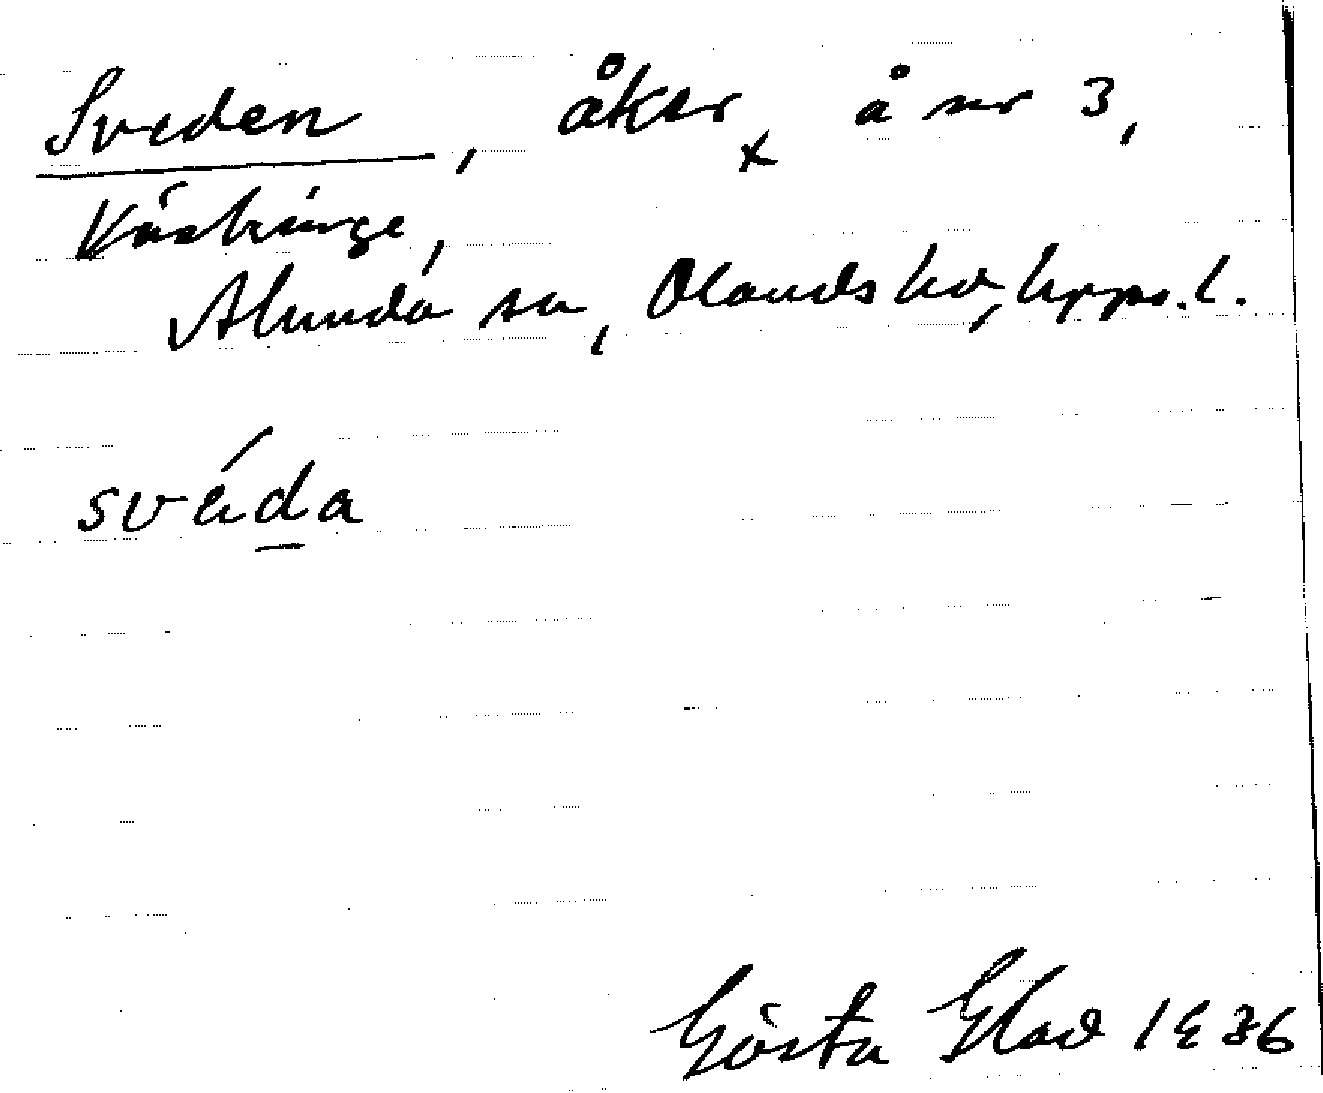 Sveden, åker x å nr 3,
Väskinge,
Alunda sn, Olands hd, Upps. l.
svéda
Gösta Elad 1936